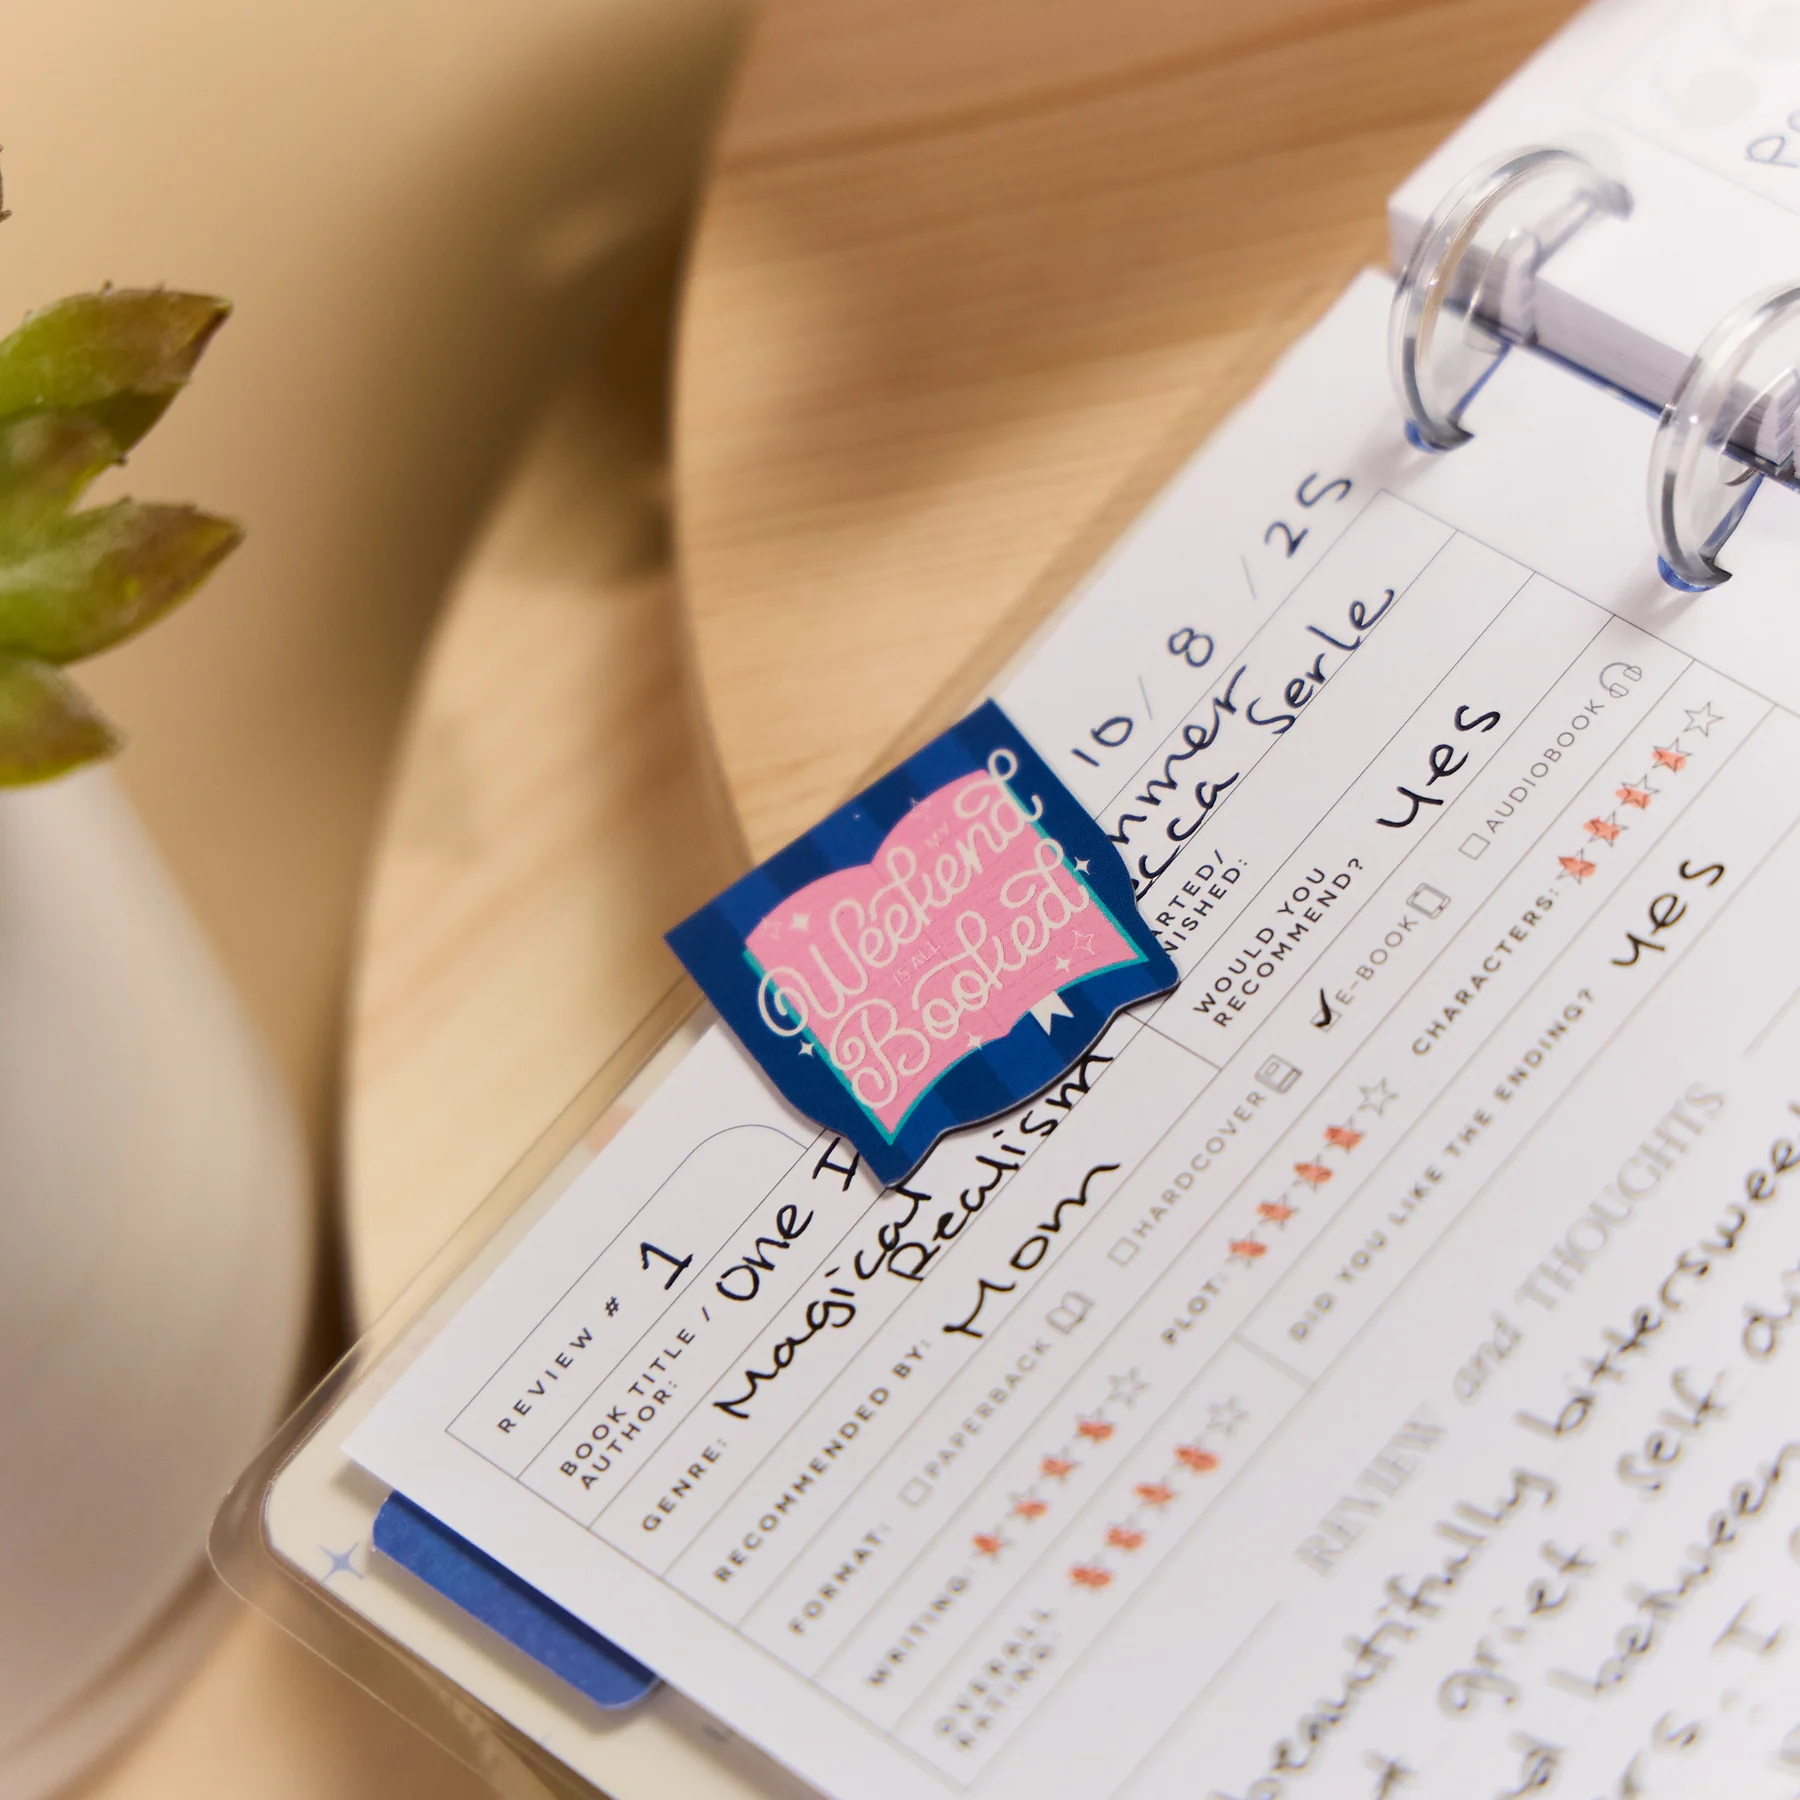 10/8/25
REVIEW # 1
BOOK TITLE / AUTHOR: One I
mmer
ecca Serle
GENRE: Magical Realism
ARTED/
NISHED:
RECOMMENDED BY: Mom
WOULD YOU RECOMMEND? yes
FORMAT: PAPERBACK HARDCOVER E-BOOK AUDIOBOOK
WRITING: PLOT: CHARACTERS:
OVERALL RATING: DID YOU LIKE THE ENDING? yes
REVIEW and THOUGHTS
beautifully bittersweet
grief, self
between
I
MY
Weekend
IS ALL
Booked